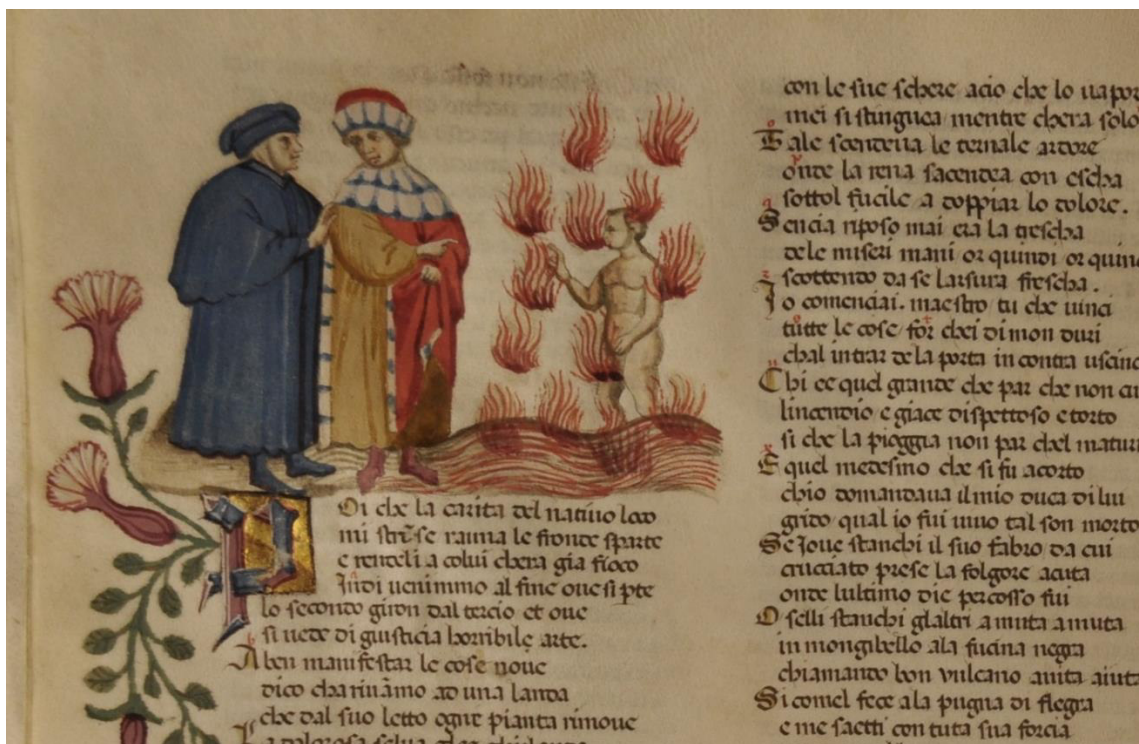 Poi che la carita del nativo loco
mi strĩse raunai le fronde sparte
e rendeli a colui chera gia fioco
Indi venimmo al fine ove si pte
lo secondo giron dal tercio et ove
si vede di giusticia horribile arte.
A ben manifestar le cose nove
dico che arivãmo ad una landa
che dal suo letto ogne pianta rimove
con le sue schere acio che lo uapor
mei si stingueva mentre chera solo
Tale scendeva le ternale ardore
onde la rena sacendea con escha
sottol fucile a doppiar lo dolore.
Sencia riposo mai era la trescha
dele miseri mani or quindi or quinci
scottendo da se larsura frescha.
Io comenciai. maestro tu che vinci
tutte le cose for chei dimon duri
chal intrar de la porta in contra uscinci
Chi ce quel grande che par che non curi
lincendio e giace dispettoso e torto
si che la pioggia non par chel maturi
E quel medesmo che si fu acorto
chio domandava il mio duca di lui
grido qual io fui vivo tal son morto
Se Iove stanchi il suo fabro da cui
crucciato prese la folgore acuta
onde lultimo die percosso fui
O selli stanchi glaltri a muta a muta
in mongibello ala fucina negra
chiamando bon vulcano aiuta aiuta
Si comel fece ala pugna di flegra
e me saetti con tuta sua forcia